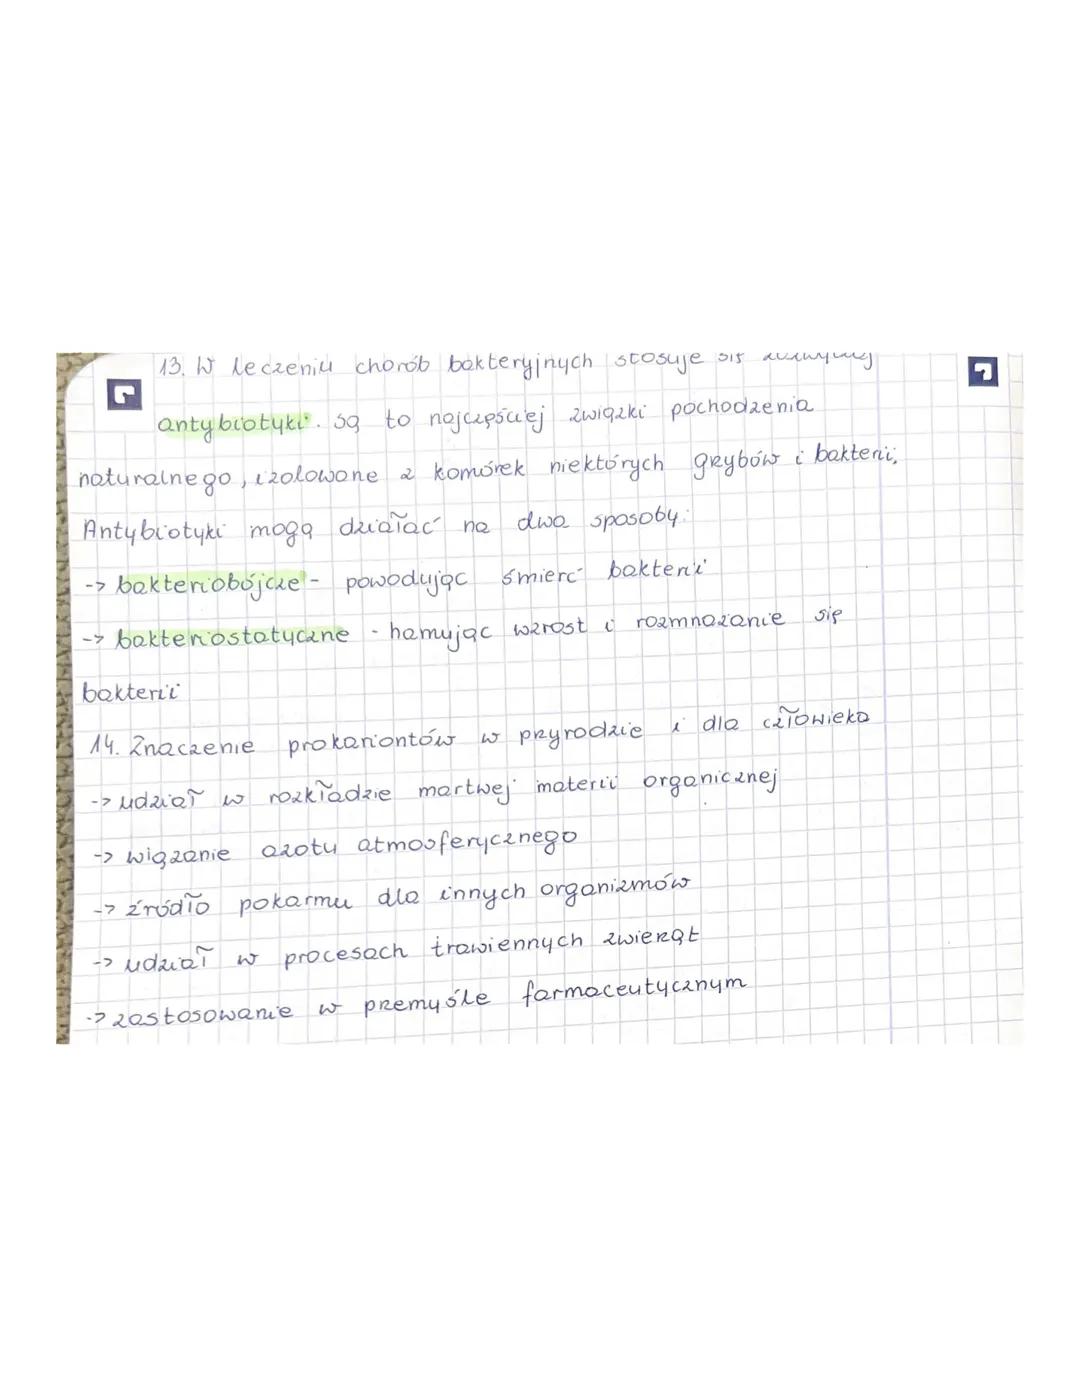 13. W leczeniu chorób bakteryjnych stosuje się
antybiotyki. są to najczęściej związki pochodzenia
naturalnego, izolowane z komórek niektórych grzybów i bakterii.
Antybiotyki mogą działać na dwa sposoby:
-> bakteriobójcze - powodując śmierć bakterii
-> bakteriostatyczne - hamując wzrost i rozmnażanie się
bakterii
14. Znaczenie prokariontów w przyrodzie i dla człowieka
-> udział w rozkładzie martwej materii organicznej
-> wiązanie azotu atmosferycznego
-> źródło pokarmu dla innych organizmów
-> udział w procesach trawiennych zwierząt
-> zastosowanie w przemyśle farmaceutycznym